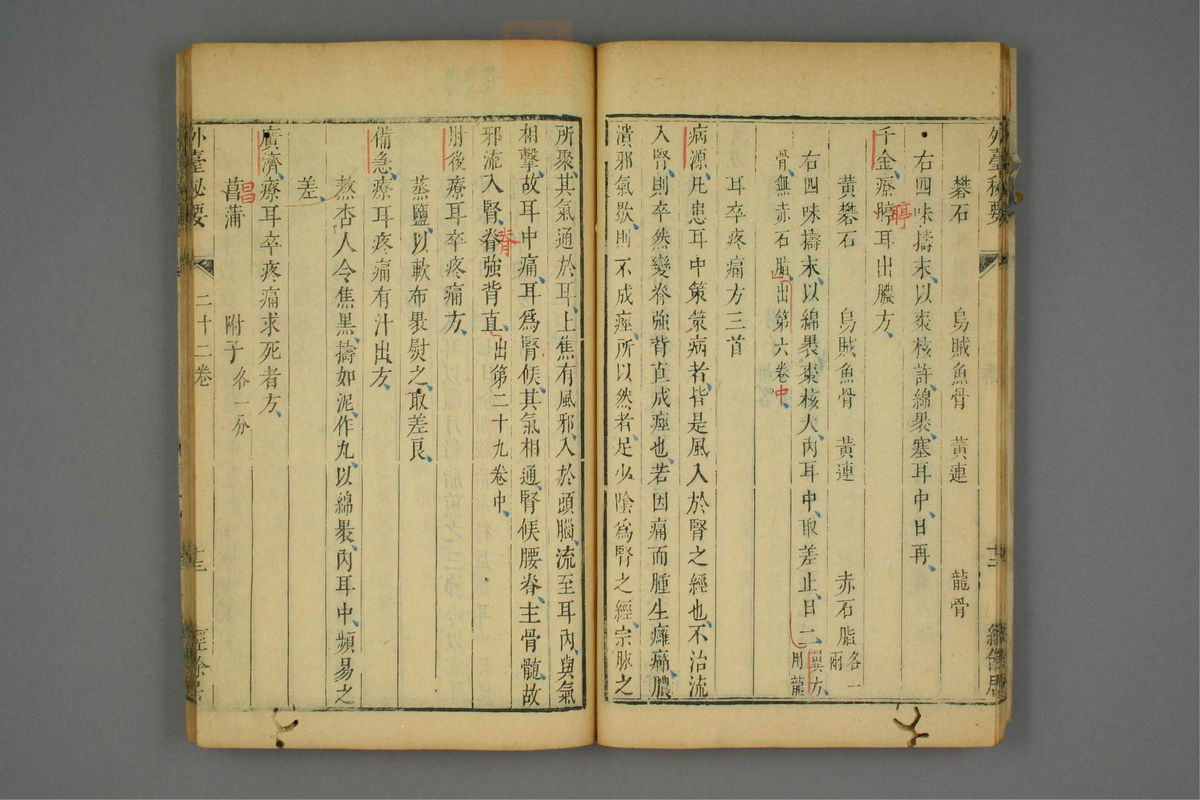 礬石　烏賊魚骨　黃連　龍骨
右四味擣末以棗核許綿褁塞耳中日再
千金療聤耳出膿方
黃礬石　烏賊魚骨　黃連　赤石脂各一兩
右四味擣末以綿褁棗核大內耳中取差止日二翼方用龍
骨無赤石脂出第六卷中
耳卒疼痛方三首
病源凡患耳中策策病者皆是風入於腎之經也不治流
入腎則卒然變脊強背直成痙也若因痛而腫生癰癤膿
潰邪氣歇則不成痙所以然者足少陰爲腎之經宗脉之
所聚其氣通於耳上焦有風邪入於頭腦流至耳內與氣
相擊故耳中痛耳爲腎候其氣相通腎候腰脊主骨髓故
邪流入腎脊強背直出第二十九卷中
肘後療耳卒疼痛方
蒸鹽以軟布褁熨之取差良
備急療耳疼痛有汁出方
熬杏人令焦黑擣如泥作丸以綿褁內耳中頻易之
差
廣濟療耳卒疼痛求死者方
菖蒲　附子各一分
外臺祕要
二十二卷
十三
經餘居